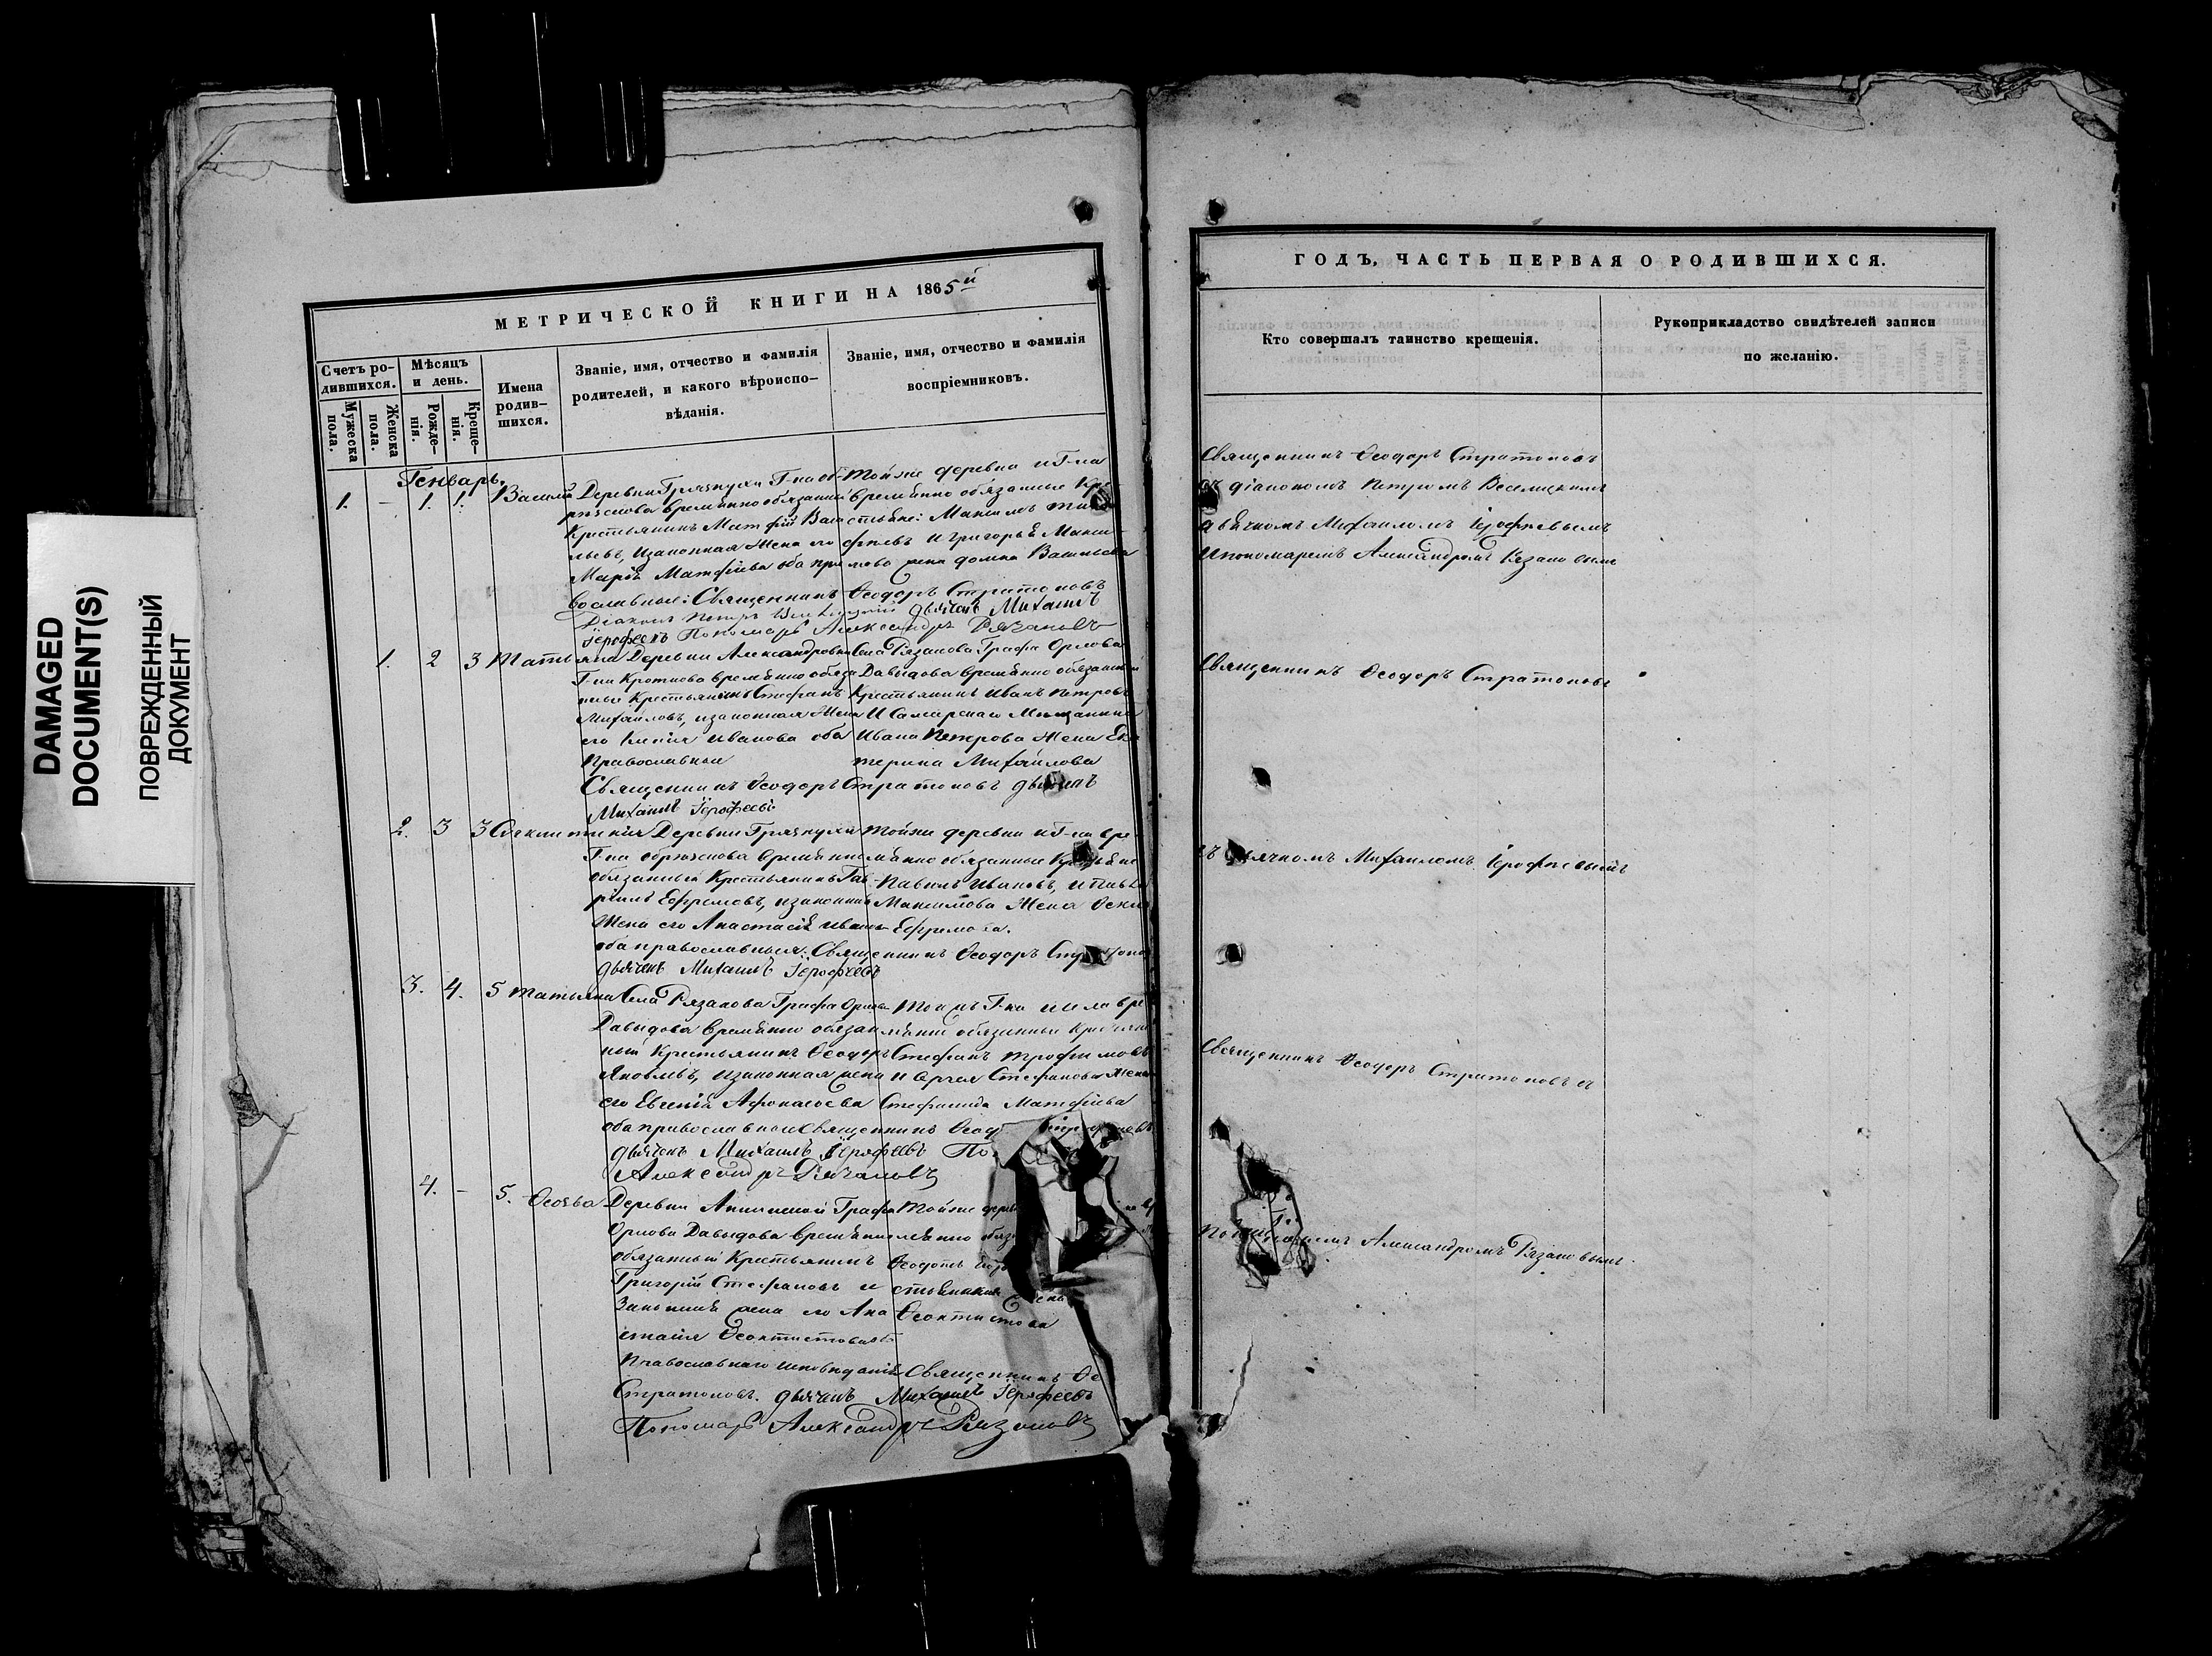 DAMAGED
DOCUMENT(S)
ПОВРЕЖДЕННЫЙ
ДОКУМЕНТ
МЕТРИЧЕСКОЙ КНИГИ НА 1865й
Счетъ ро-
дившихся.
Мужеска
пола.
Женска
пола.
Мѣсяцъ
и день.
Рожде-
нія.
Креще-
нія.
Имена
родив-
шихся.
Званіе, имя, отчество и фамилія
родителей, и какого вѣроиспо-
вѣданія.
Званіе, имя, отчество и фамилія
воспріемниковъ.
Генварь.
1. - 1. 1. Василій
Деревни Грязнухи Г-на Об-
рѣзкова временно обязанный
Крестьянинъ Матфій Васи-
льевъ, и законная жена его
Марія Матфіева оба пра
вославные:
Тойже деревни и Г-на
временно обязанные Кре
стьяне: Максимъ
и Григорья Макси-
мова жена Домна Васильева
Священникъ Ѳеодоръ Стратоновъ
Діаконъ Петръ дьячекъ Михаилъ
Іерофеевъ Пономарь Александръ Рязановъ
1. 2 3 Татьяна
Деревни Александровки
Г-на Кроткова временно обяза
нный Крестьянинъ Стефанъ
Михайловъ, и законная жена
его Иванова оба
Православные
Села Рязанова Графа Орлова
Давыдова временно обязанный
Крестьянинъ Иванъ Петровъ
И Самарскаго Мѣщанина
Ивана Петрова жена Ека
терина Михайлова
Священникъ Ѳеодоръ Стратоновъ дьячекъ
Михаилъ Іерофеевъ
2. 3 3 Синклитикія
Деревни Грязнухи
Г-на Обрѣзкова временно
обязанный Крестьянинъ Гав-
рiилъ Ефремовъ, и законная
жена его Анастасія Иванова
оба православныя:
Тойже деревни и Г-на вре
менно обязанные Крестьяне
Павелъ Ивановъ, и Павла
Максимова жена
Ефремова.
Священникъ Ѳеодоръ
дьячекъ Михаилъ Іерофеевъ
3. 4. 5 Татьяна
Села Рязанова Графа Орлова
Давыдова временно обязан
ный Крестьянинъ Ѳеодоръ
Яковлевъ, и законная жена
его Евгенія Афонасьева
оба православные
Тогожъ Г-на и села вре
менно обязанные
Стефанъ Трофимовъ
и Сергея Стефанова жена
Стефанида Матфіева
Священникъ Ѳеод
дьячекъ Михаилъ Іерофеевъ По
Александръ Рязановъ
4. - 5. Ѳеозва
Деревни Аннинской Графа
Орлова Давыдова временно
обязанный Крестьянинъ
Григорій Стефановъ и
законная жена его Ана
стасія Ѳеоктистова
Тойже
менно
Ѳеодотъ
Ѳеоктистова
Православнаго исповѣданія Священникъ Ѳе
Стратоновъ. дьячекъ Михаилъ Іерофеевъ
Пономарь Александръ Рязановъ
ГОДЪ, ЧАСТЬ ПЕРВАЯ О РОДИВШИХСЯ.
Кто совершалъ таинство крещенія.
Рукоприкладство свидѣтелей записи
по желанію.
Священникъ Ѳеодоръ Стратоновъ
съ діакономъ Петромъ Веселицкимъ
дьячкомъ Михаиломъ Іерофеевымъ
и пономаремъ Александромъ Рязановымъ
Священникъ Ѳеодоръ Стратоновъ
съ дьячкомъ Михаиломъ Іерофеевымъ
Священникъ Ѳеодоръ Стратоновъ съ
Александромъ Рязановымъ.